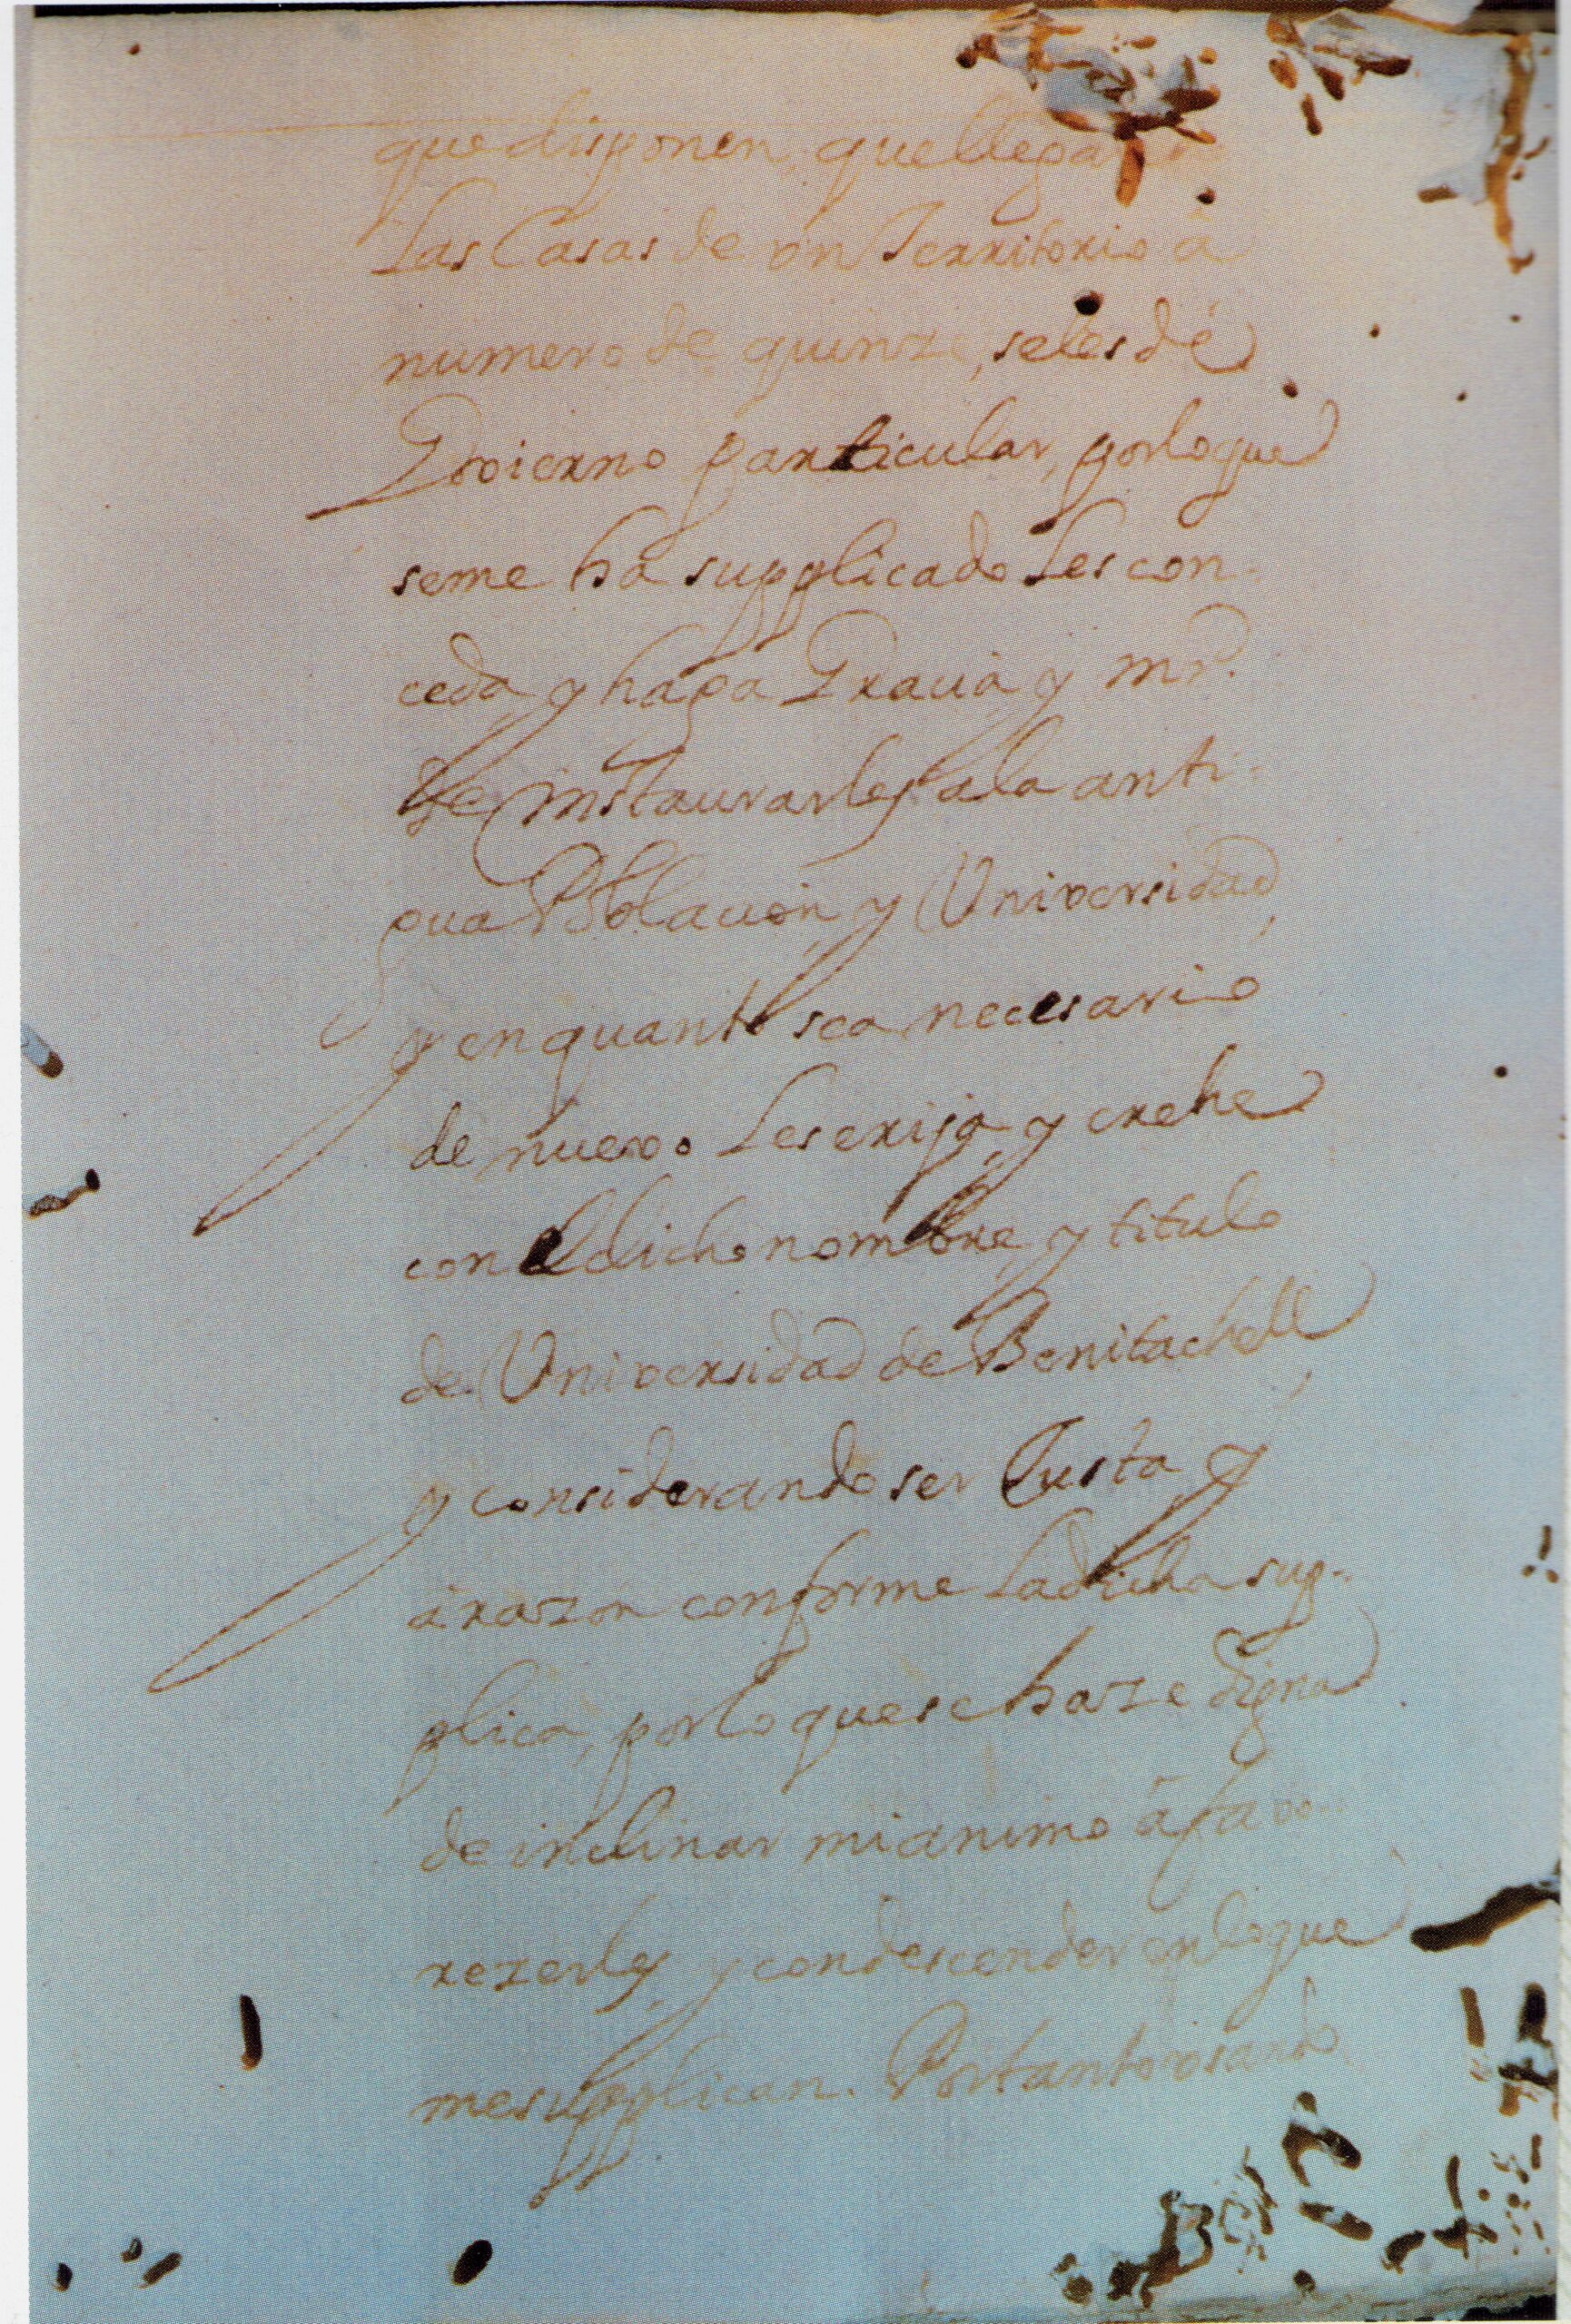 que disponen, que llegando
las Casas de vn Territorio â
numero de quinze, se les dé
Govierno particular, por lo que
se me ha supplicado les con-
ceda, y haga Gracia, y md.
de instaurarles a la anti-
gua Poblacion, y Universidad,
y en quanto sea necesario
de nuevo les exija, y crehe
con el dicho nombre, y titulo
de Universidad de Benitachell,
y considerando ser Justa, y
â razon conforme la dicha sup-
plica, por lo que se haze digna
de inclinar mi animo â favo-
rezerles, y condescender en lo que
me supplican. Por tanto vsando